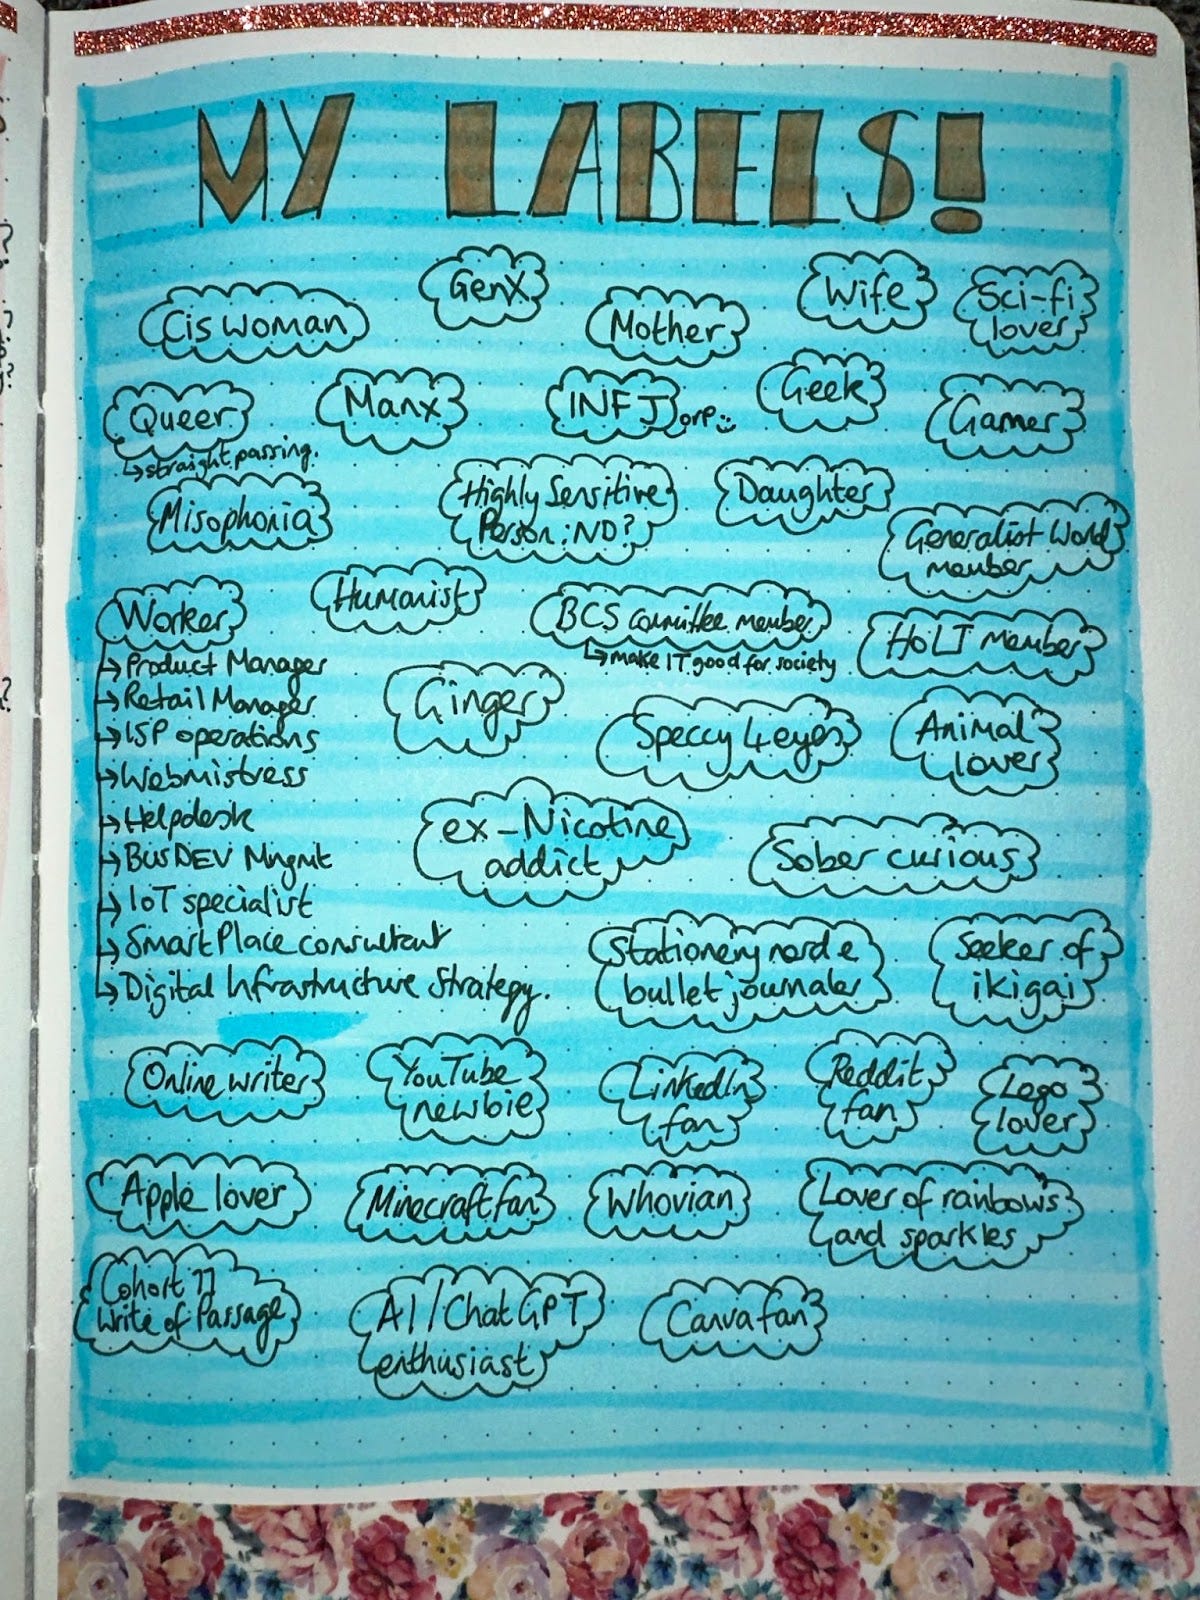 MY LABELS!
GenX
Wife
Sci-fi
lover
Cis woman
Mother
Queer
↳ straight passing.
Manx
INFJ orP :)
Geek
Gamer
Misophonia
Highly Sensitive
Person: ND?
Daughter
Generalist World
member
Worker
↳ Product Manager
↳ Retail Manager
↳ ISP operations
↳ Webmistress
↳ Helpdesk
↳ BusDEV Mngmt
↳ IoT specialist
↳ Smart Place consultant
↳ Digital Infrastructure Strategy.
Humanist
BCS committee member
↳ make IT good for society
HoLT member
Ginger
Speccy 4 eyes
Animal
lover
ex-Nicotine
addict
Sober curious
Stationery nerd &
bullet journaler
Seeker of
ikigai
Online writer
YouTube
newbie
LinkedIn
fan
Reddit
fan
Lego
lover
Apple lover
Minecraft fan
Whovian
Lover of rainbows
and sparkles
Cohort 11
Write of Passage
AI/ChatGPT
enthusiast
Canva fan